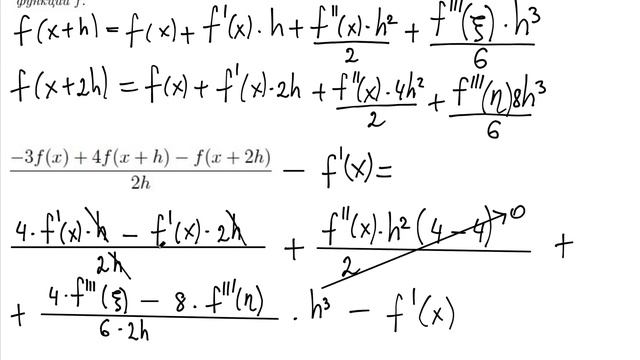 функции f.
f(x+h) = f(x) + f'(x)·h + f''(x)·h²/2 + f'''(ξ)·h³/6
f(x+2h) = f(x) + f'(x)·2h + f''(x)·4h²/2 + f'''(η)8h³/6
(−3f(x) + 4f(x + h) − f(x + 2h))/2h − f'(x)=
(4·f'(x)·h − f'(x)·2h)/2h + f''(x)·h²(4−4)/2 → 0 +
+ (4·f'''(ξ) − 8·f'''(η))/(6·2h) · h³ − f'(x)